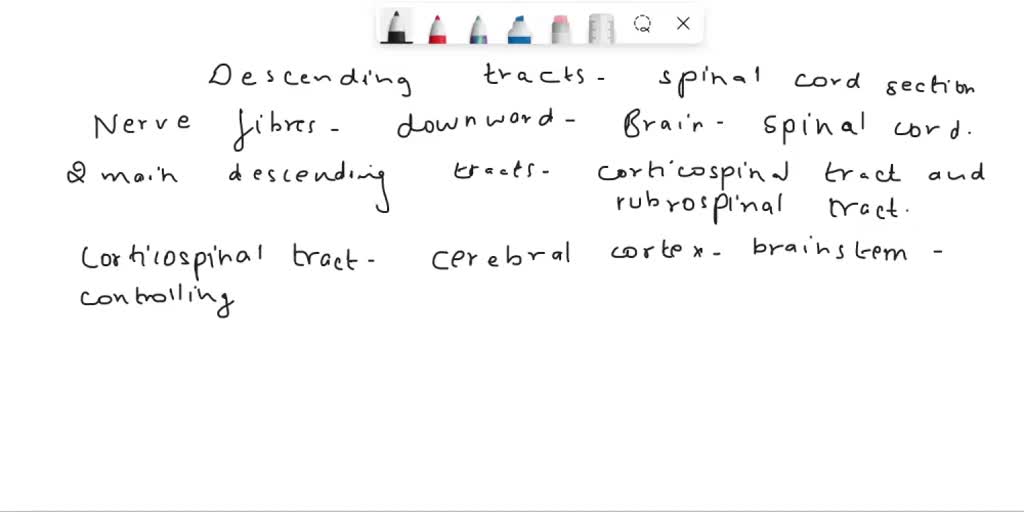 Descending tracts - spinal cord section
Nerve fibres - downward - Brain - spinal cord.
2 main descending tracts - corticospinal tract and
rubrospinal tract.
Corticospinal tract - cerebral cortex - brainstem -
controlling